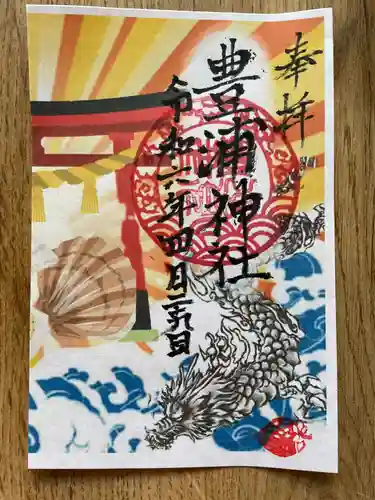 奉拝
豊浦神社
令和六年四月二九日